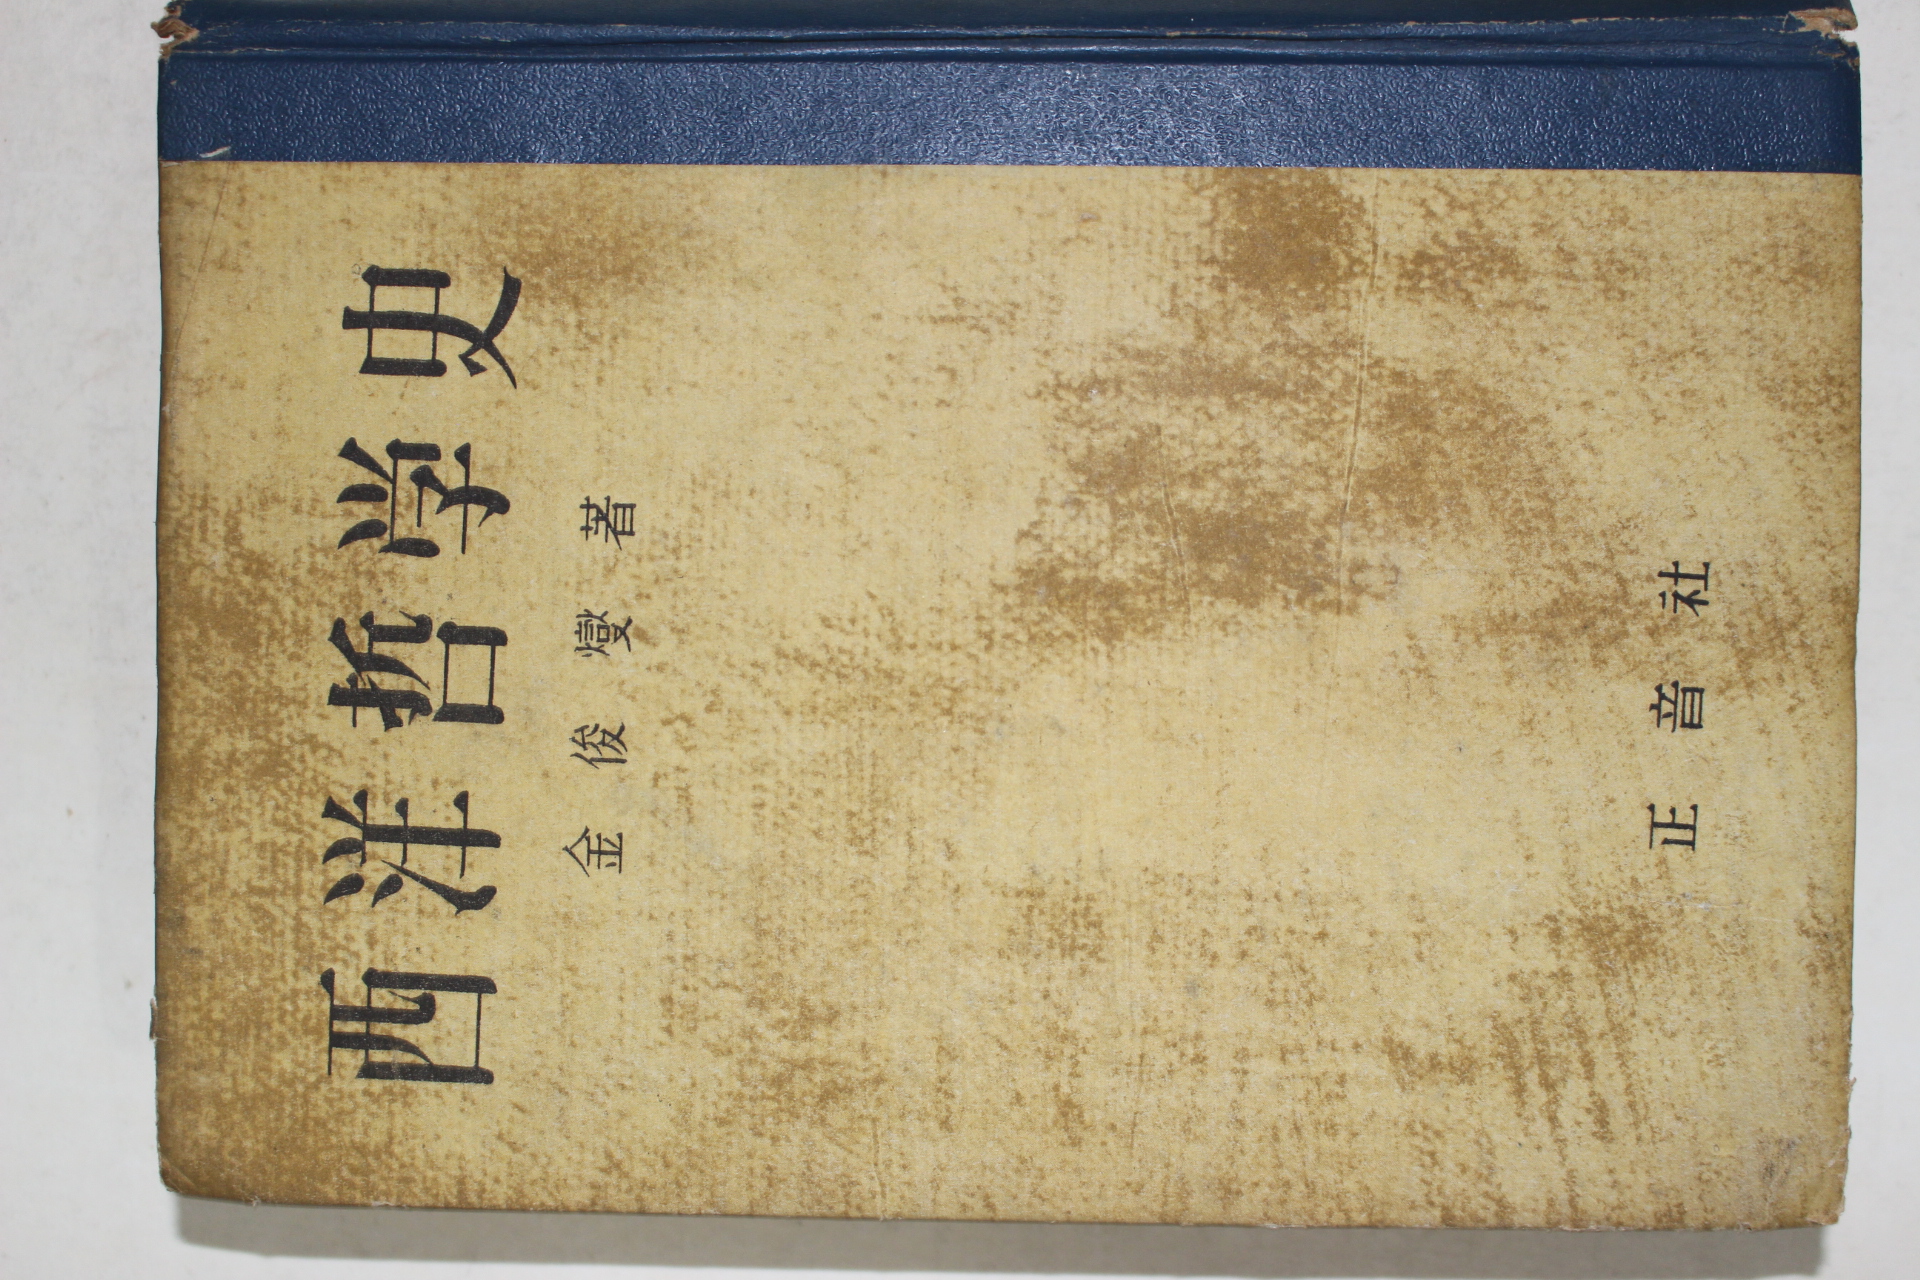 西洋哲学史
金俊燮著
正音社